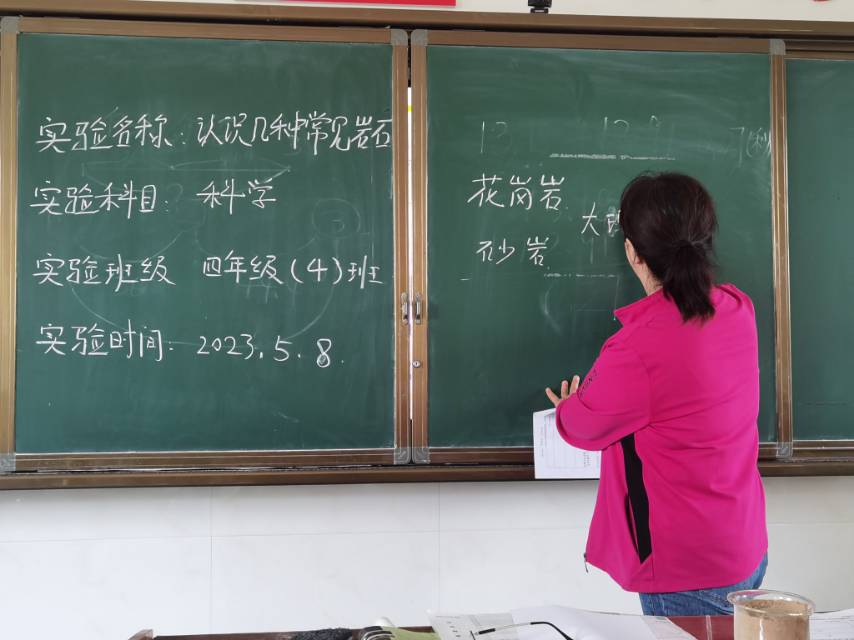 实验名称：认识几种常见岩石
实验科目：科学
实验班级 四年级（4）班
实验时间：2023.5.8.
花岗岩
砂岩
大